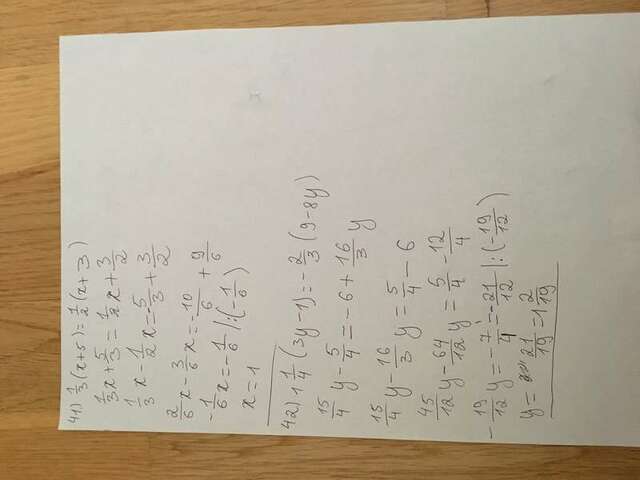 41) 1/3 (x+5) = 1/2 (x+3)
1/3 x + 5/3 = 1/2 x + 3/2
1/3 x - 1/2 x = -5/3 + 3/2
2/6 x - 3/6 x = -10/6 + 9/6
-1/6 x = -1/6 |:(-1/6)
x = 1
42) 1 1/4 (3y-1) = -2/3 (9-8y)
15/4 y - 5/4 = -6 + 16/3 y
15/4 y - 16/3 y = 5/4 - 6
45/12 y - 64/12 y = 5/4 - 12/4
-19/12 y = -7/4 = -21/12 |:(-19/12)
y = 21/19 = 1 2/19